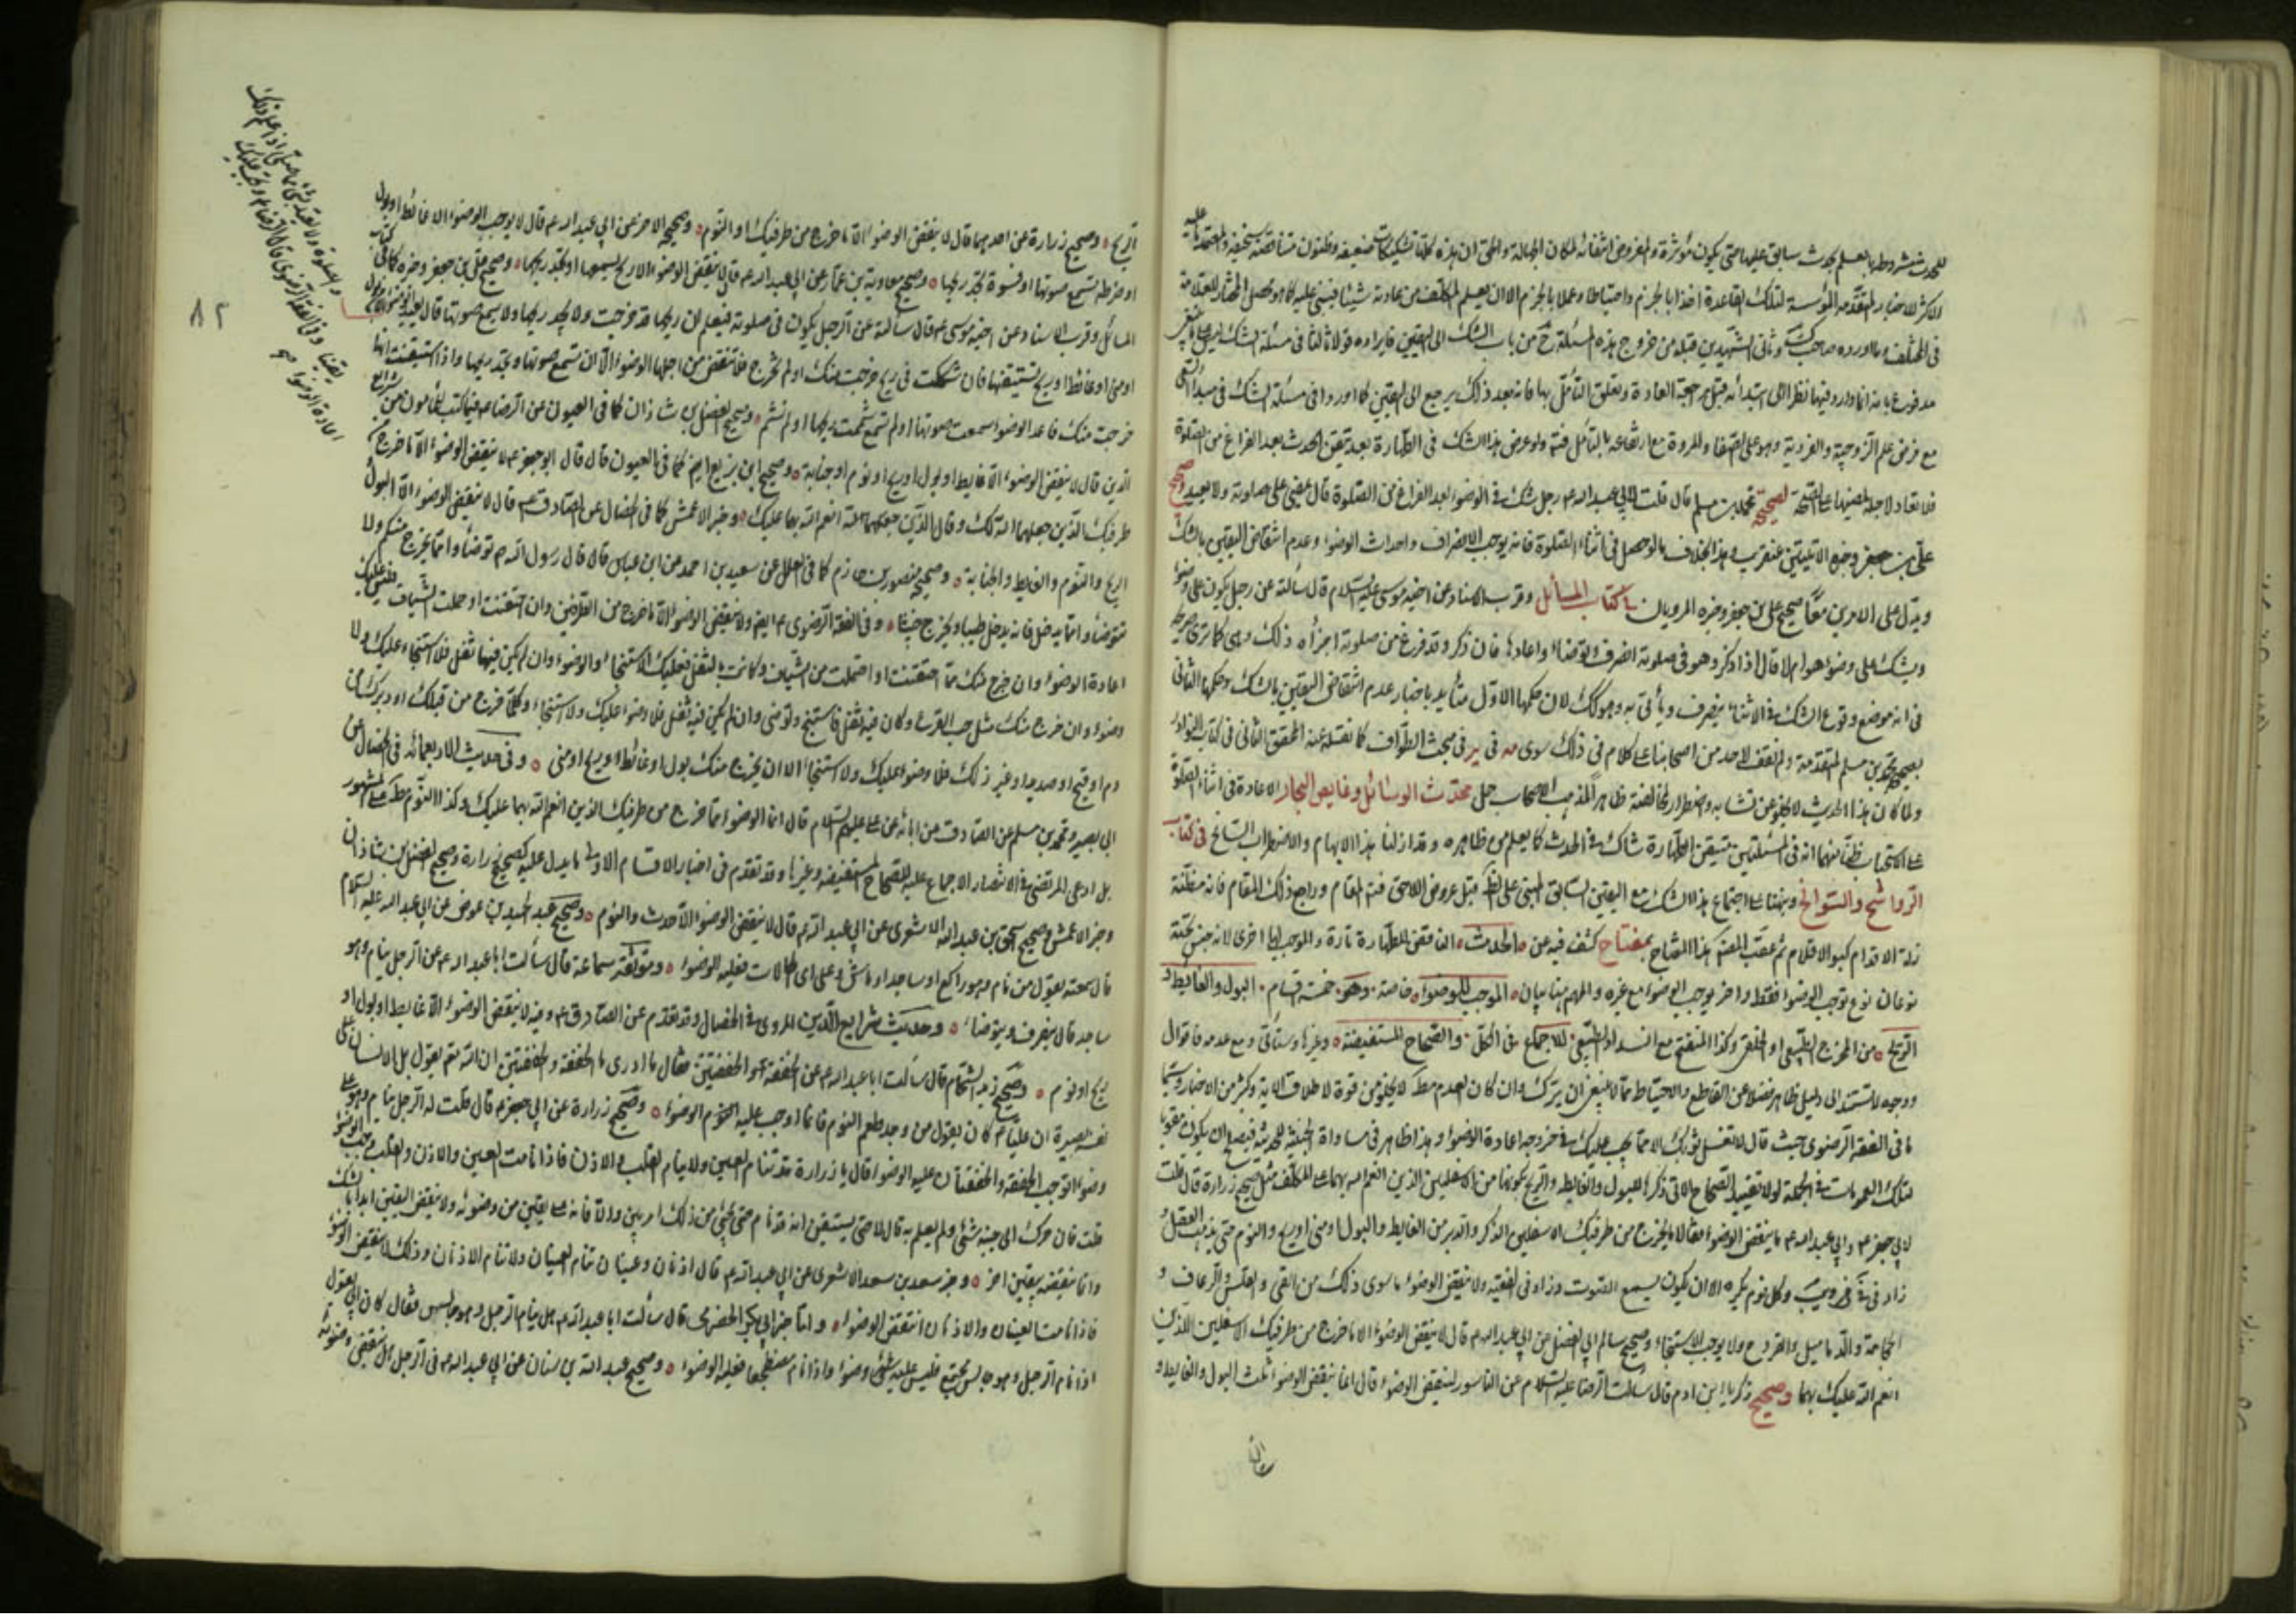 للحدث مشروطة بالعلم بحدث سابق عليها حتى يكون مؤثرة والمفروض انتفائه لمكان الجهالة والحق ان هذه كلها تشكيكات ضعيفة وظنون متناقضة سخيفة والمعتمد عليه
الاكثر للاخبار المتقدمة المؤسسة لتلك القاعدة اخذا بالجزم واحتياطا وعملا بالجزم الا ان يعلم المكلف من عادته شيئا فيبني عليه كما هو محصل المختار للعلامة
في المختلف وما اورده صاحب وثاني الشهيدين قبله من خروج هذه المسئلة ح من باب الشك الى اليقين فايراده قولا ثالثا في مسئلة الشك ليس
مدفوع بانه انما وارد فيها نظرا الى ابتدائه قبل مراجعة العادة وتعلق التأمل بها فانه بعد ذلك يرجع الى اليقين كما اوردوا في مسئلة الشك في مبدأ
مع فرض علم الزوجية والفردية وهو على الصفا والمروة مع ارتفاعه بالتأمل فيه ولو عرض هذا الشك في الطهارة بعد تيقن الحدث بعد الفراغ من الصلوة
فلا تعاد لاجله لمضيها على الصحة لصحيحة محمد بن مسلم قال قلت لابي عبد الله ع رجل شك في الوضوء بعد الفراغ من الصلوة قال يمضي على صلوته ولا يعيد وصحيح
علي بن جعفر وخبره الاتيتين عنقريب وهذا بخلاف ما لو حصل في اثناء الصلوة فانه يوجب الانصراف واحداث الوضوء وعدم انتقاض اليقين بالشك
ويدل على الامرين معا صحيح علي بن جعفر وخبره المرويان في كتاب المسائل وقرب الاسناد عن اخيه موسى عليه السلام قال سألته عن رجل يكون على وضوء
ويشك على وضوء هو ام لا قال اذا ذكر وهو في صلوته انصرف وتوضأ واعادها فان ذكر وقد فرغ من صلوته اجزأه ذلك وهي كما ترى
في انه موضع وقوع الشك في الاثناء ينصرف ويأتي به وهو كك لان حكمها الاول متأيد باخبار عدم انتقاض اليقين بالشك وحكمها الثاني
بصحيحة محمد بن مسلم المتقدمة ولم نقف لاحد من اصحابنا على كلام في ذلك سوى في مبحث الطواف كما نقله عنه المحقق الثاني في كتاب
ولما كان هذا الحديث لا يخلو عن تشابه واضطراب لمخالفته ظاهرا لمذهب الاصحاب حمل محدث الوسائل وغايص البحار الاعادة في اثناء الصلوة
على الاستحباب ظنا منهما انه في المسئلتين متيقن الطهارة شاك في الحدث كما يعلم من ظاهره وقد ازلنا هذا الابهام والاضطراب السانح في كتاب
الرواشح والسوانح ونبهنا على اجتماع هذا الشك مع اليقين السابق المبني على قبل عروض اللاحق فيه المقام وراجع ذلك المقام فانه مظنة
زلة الاقدام كبو الاقلام ثم عقب المصنف هذا المفتاح بمفتاح كشف فيه عن الحدث الناقض للطهارة تارة والموجب لها اخرى لانه جنس تحته
نوعان نوع يوجب الوضوء فقط واخر يوجب الوضوء مع غيره والمهم هنا بيان الموجب للوضوء خاصة وهو خمسة اقسام البول والغايط و
الريح من المخرج الطبيعي او الخلقي وكذا المنفتح مع انسداد الطبيعي للاجماع في الكل والصحاح المستفيضة وغيرها وستأتي ومع عدمه فاقوال
ووجوه لا مستند الى دليل ظاهر فضلا عن القاطع والاحتياط مما لا ينبغي ان يترك وان كان العدم مط لا يخلو من قوة لاطلاق الاية وكثير من الاخبار وسيما
ما في الفقه الرضوي حيث قال لا تغسل ثوبك الا مما يجب عليك في خروجه اعادة الوضوء وهذا ظاهر في مساواة
تلك العمومات في الجملة لولا تقييد الصحاح لاتي ذكرها للبول والغايط والريح بكونها من الاسفلين الذين انعم الله بهما على المكلف مثل صحيح زرارة قال قلت
لابي جعفر ع وابي عبد الله ع ما ينقض الوضوء فقالا ما يخرج من طرفيك الاسفلين الذكر والدبر من الغايط والبول او مني او ريح والنوم حتى يذهب العقل
زاد في وكل نوم يكره الا ان يكون يسمع الصوت وزاد في الفقيه ولا ينقض الوضوء ما سوى ذلك من القي والقلس والرعاف و
الحجامة والدماميل والقروح ولا يوجب الاستنجاء وصحيح سالم ابي الفضل عن ابي عبد الله ع قال لا ينقض الوضوء الا ما خرج من طرفيك الاسفلين اللذين
انعم الله عليك بهما وصحيح زكريا ابن ادم قال سألت الرضا عليه السلام عن الناسور اينقض الوضوء قال انما ينقض الوضوء ثلث البول والغايط و
الريح وصحيح زرارة عن احدهما قال لا ينقض الوضوء الا ما خرج من طرفيك او النوم وصحيحه الاخر عن ابي عبد الله ع قال لا يوجب الوضوء الا غائط او بول
او ضرطة تسمع صوتها او فسوة تجد ريحها وصحيح معاوية بن عمار عن ابي عبد الله ع قال لا ينقض الوضوء الا ريح يسمعها او يجد ريحها وصحيح علي بن جعفر وخبره كما في كتاب
المسائل وقرب الاسناد عن اخيه موسى ع قال سألته عن الرجل يكون في صلوته فيعلم ان ريحا قد خرجت ولا يجد ريحها ولا يسمع صوتها قال يعيد الوضوء
او مني او غائط او ريح تستيقنها فان شككت في ريح خرجت منك او لم تخرج فلا تنقض من اجلها الوضوء الا ان تسمع صوتها وتجد ريحها واذا استيقنت انها
خرجت منك فاعد الوضوء سمعت صوتها او لم تسمع شممت ريحها او لم تشم وصحيح الفضل بن شاذان كما في العيون عن الرضا ع فيما كتب للمأمون من شرايع
الدين قال لا ينقض الوضوء الا غايط او بول او ريح او نوم او جنابة وصحيح ابن بزيع ايضا كما في العيون قال قال ابو جعفر ع لا ينقض الوضوء الا ما خرج من
طرفيك الذين جعلهما الله لك وقال الذين جعلهما الله انعم الله بهما عليك وخبر الاعمش كما في الخصال عن الصادق ع قال لا ينقض الوضوء الا البول
الريح والنوم والغايط والجنابة وصحيح منصور بن حازم كما في العلل عن سعيد بن احمد عن ابن عباس قال قال رسول الله ص توضأوا مما يخرج منكم ولا
تتوضأوا مما يدخل فانه يدخل طيبا ويخرج خبيثا وفي الفقه الرضوي ع ايضا ولا ينقض الوضوء الا ما خرج من الطرفين وان احتقنت او حملت الشياف فليس عليك
اعادة الوضوء وان خرج منك مما احتقنت او احتملت من الشياف وكانت بالثفل فعليك الاستنجاء والوضوء وان لم يكن فيها ثفل فلا استنجاء عليك ولا
وضوء وان خرج منك مثل حب القرع وكان فيه ثفل فاستنج وتوضئ وان لم يكن فيه ثفل فلا وضوء عليك ولا استنجاء وكلما خرج من قبلك او دبرك من
دم او قيح او صديد او غير ذلك فلا وضوء عليك ولا استنجاء الا ان يخرج منك بول او غائط او ريح او مني وفي حديث الاربعمائه في الخصال عن
ابي بصير ومحمد بن مسلم عن الصادق عن ابائه عن علي عليهم السلام قال انما الوضوء مما خرج من طرفيك الذين انعم الله بهما عليك وكذا النوم مط على المشهور
بل ادعى المرتضى في الانتصار الاجماع عليه للصحاح المستفيضة وغيرها وقد تقدم في اخبار الاقسام الاول ما يدل عليه كصحيح زرارة وصحيح الفضل بن شاذان
وخبر الاعمش وصحيح اسحق بن عبد الله الاشعري عن ابي عبد الله ع قال لا ينقض الوضوء الا حدث والنوم وصحيح عبد الحميد بن عواض عن ابي عبد الله عليه السلام
قال سمعته يقول من نام وهو راكع او ساجد او ماش على اي الحالات فعليه الوضوء وموثقة سماعة قال سألت ابا عبد الله ع عن الرجل ينام وهو
ساجد قال ينصرف ويتوضأ وحديث شرايع الدين المروي في الخصال وقد تقدم عن الصادق ع وفيه لا ينقض الوضوء الا غايط او بول او
ريح او نوم وصحيح زيد الشحام قال سألت ابا عبد الله ع عن الخفقة والخفقتين فقال ما ادري ما الخفقة والخفقتين ان الله تع يقول بل الانسان على
نفسه بصيرة ان عليا ع كان يقول من وجد طعم النوم فانما اوجب عليه الوضوء وصحيح زرارة عن ابي جعفر ع قال قلت له الرجل ينام وهو على
وضوء اتوجب الخفقة والخفقتان عليه الوضوء قال يا زرارة قد تنام العين ولا ينام القلب والاذن فاذا نامت العين والاذن والقلب وجب الوضوء
قلت فان حرك الى جنبه شئ ولم يعلم به قال لا حتى يستيقن انه قد نام حتى يجئ من ذلك امر بين والا فانه على يقين من وضوئه ولا ينقض اليقين ابدا بالشك
وانما ينقضه بيقين اخر وخبر سعد بن سعد الاشعري عن ابي عبد الله ع قال اذنان وعينان تنام العينان ولا تنام الاذنان وذلك لا ينقض الوضوء
فاذا نامت العينان والاذنان انتقض الوضوء واما خبر ابي بكر الحضرمي قال سألت ابا عبد الله ع هل ينام الرجل وهو جالس فقال كان ابي يقول
اذا نام الرجل وهو جالس مجتمع فليس عليه شئ وضوء واذا نام مضطجعا فعليه الوضوء وصحيح عبد الله بن سنان عن ابي عبد الله ع في الرجل هل ينقض وضوئه
٨٢
اعادة الوضوء صح